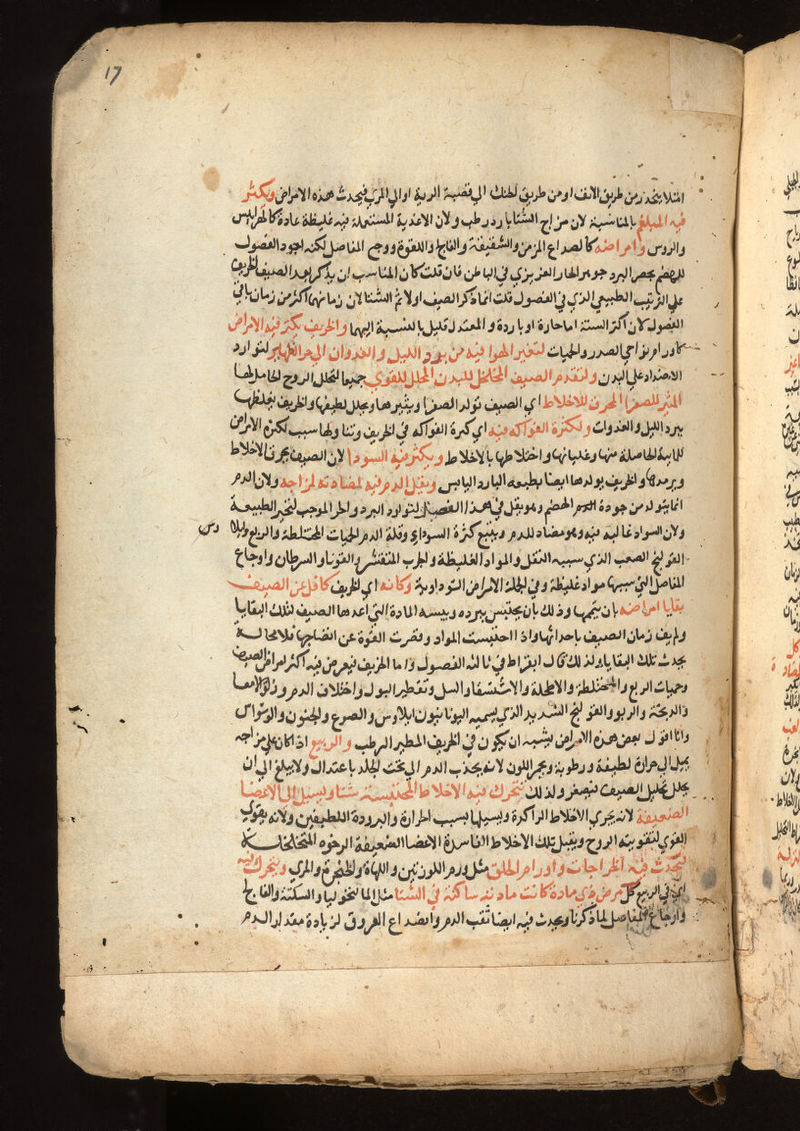 17
امتلا ينحدر من طريق الانف او من طريق الحنك الي قصبة الرية او الي المري فيحدث هذه الامراض ويكثر
فيه البلغم بالمناسبة لان مزاج الشتا بارد رطب ولان الاغذية المستعملة فيه غليظة عادة كالهرايس
والروس وامراضه كالصداع المزمن والشقيقة والفالج واللقوة ووجع المفاصل لكنه اجود الفصول
للهضم بحصر البرد جوهر الحار الغريزي في الباطن فان قلت كان المناسب ان يذكر بعد الصيف الخريف
علي الترتيب الطبيعي الذي في الفصول قلت انما ذكر الصيف اولا ثم الشتا لان زمانهما اكثر من زمان باقي
الفصول لان اكثر السنة اما حارة او باردة والمعتدل قليل بالنسبة اليهما والخريف يكثر فيه الامراض
كاورام نواحي الصدر والحميات لتغير الهوا فيه من برد الليل والغدوان الي حر الظهاير لتوارد
الاضداد علي البدن ولتقدم الصيف المخلخل للبدن المحلل للقوي جميعا لتحلل الروح الحامل لها
المثير للصفرا المحرق للاخلاط اي الصيف تولد الصفرا ويثيرها ويحلل لطيفها والخريف يغلظها
ببرد الليل والغدوات ولكثرة الفواكه فيه اي كثرة الفواكه في الخريف وتناولها سبب لكثرة الامراض
للمائية الحاصلة منها وغليانها واختلاطها بالاخلاط ويكثر فيه السودا لان الصيف يحرق الاخلاط
ويرمدها والخريف يولدها ايضا بطبعه البارد اليابس ويقل الدم فيه لمضادته لمزاجه ولان الدم
انما يتولد من جودة الهضم وهو يقل في هذا الفصل لتوارد البرد والحر الموجب لتحير الطبيعة
ولان السواد غالبه فيه وهو مضاد للدم ويتبع كثرة السوداوي وقلة الدم الحميات المختلطة والربع وبلا
القولنج الصعب الذي سببه الثقل والمواد الغليظة والجرب المتقشر والقوبا والسرطان واوجاع
المفاصل التي سببها مواد غليظة وفي الجملة الامراض السوداوية وكانه اي الخريف كافل عن الصيف
بقايا امراضه بان يتمها وذلك بان يحتبس ببرده ويبسه المادة التي اعدها الصيف لتلك البقايا
ولم يف زمان الصيف باحداثها واذا احتبست المواد وقصرت القوة عن انضاجها فلا محالة
يحدث تلك البقايا ولذلك قال ابقراط في ثالثة الفصول واما الخريف فيعرض فيه اكثر امراض الصيف
وحميات الربع والمختلطة والاطحلة والاستسقا والسل وتقطير البول واختلاف الدم وزلق الامعا
والذبحة والربو والقولنج الشديد الذي يسميه اليونانيون ايلاوس والصرع والجنون والوسواس
وانا اقول بعض هذه الامراض يشبه ان يكون في الخريف المطير الرطب والربيع اذا كان علي مزاجه
يميل الي حرارة لطيفة ورطوبة ويحمر اللون لانه يجذب الدم الي تحت الجلد باعتدال ولا يبلغ الي ان
يحلل تحليل الصيف فيصفر ولذلك تتحرك فيه الاخلاط المحتبسة شتا ويسيل الي الاعضا
الضعيفة لانه يجري الاخلاط الراكدة ويسيلها بسبب الحرارة والبرودة اللطيفتين ولانه يقوي
القوي لتقويته الروح ويقبل تلك الاخلاط الفاسدة الاعضا الضعيفة الرخوة المتخلخلة
فتحدث فيه الخراجات واورام الحلق مثل ورم اللوزتين واللهاة والحنجرة والمري ويتحرك فيه
اي في الربيع كل مرض ذي مادة كانت مادته ساكنة في الشتا مثل المالنخوليا والسكتة والفالج
واوجاع المفاصل لما ذكرنا ويحدث فيه ايضا نفث الدم وانصداع العروق لزيادة مقدار الدم